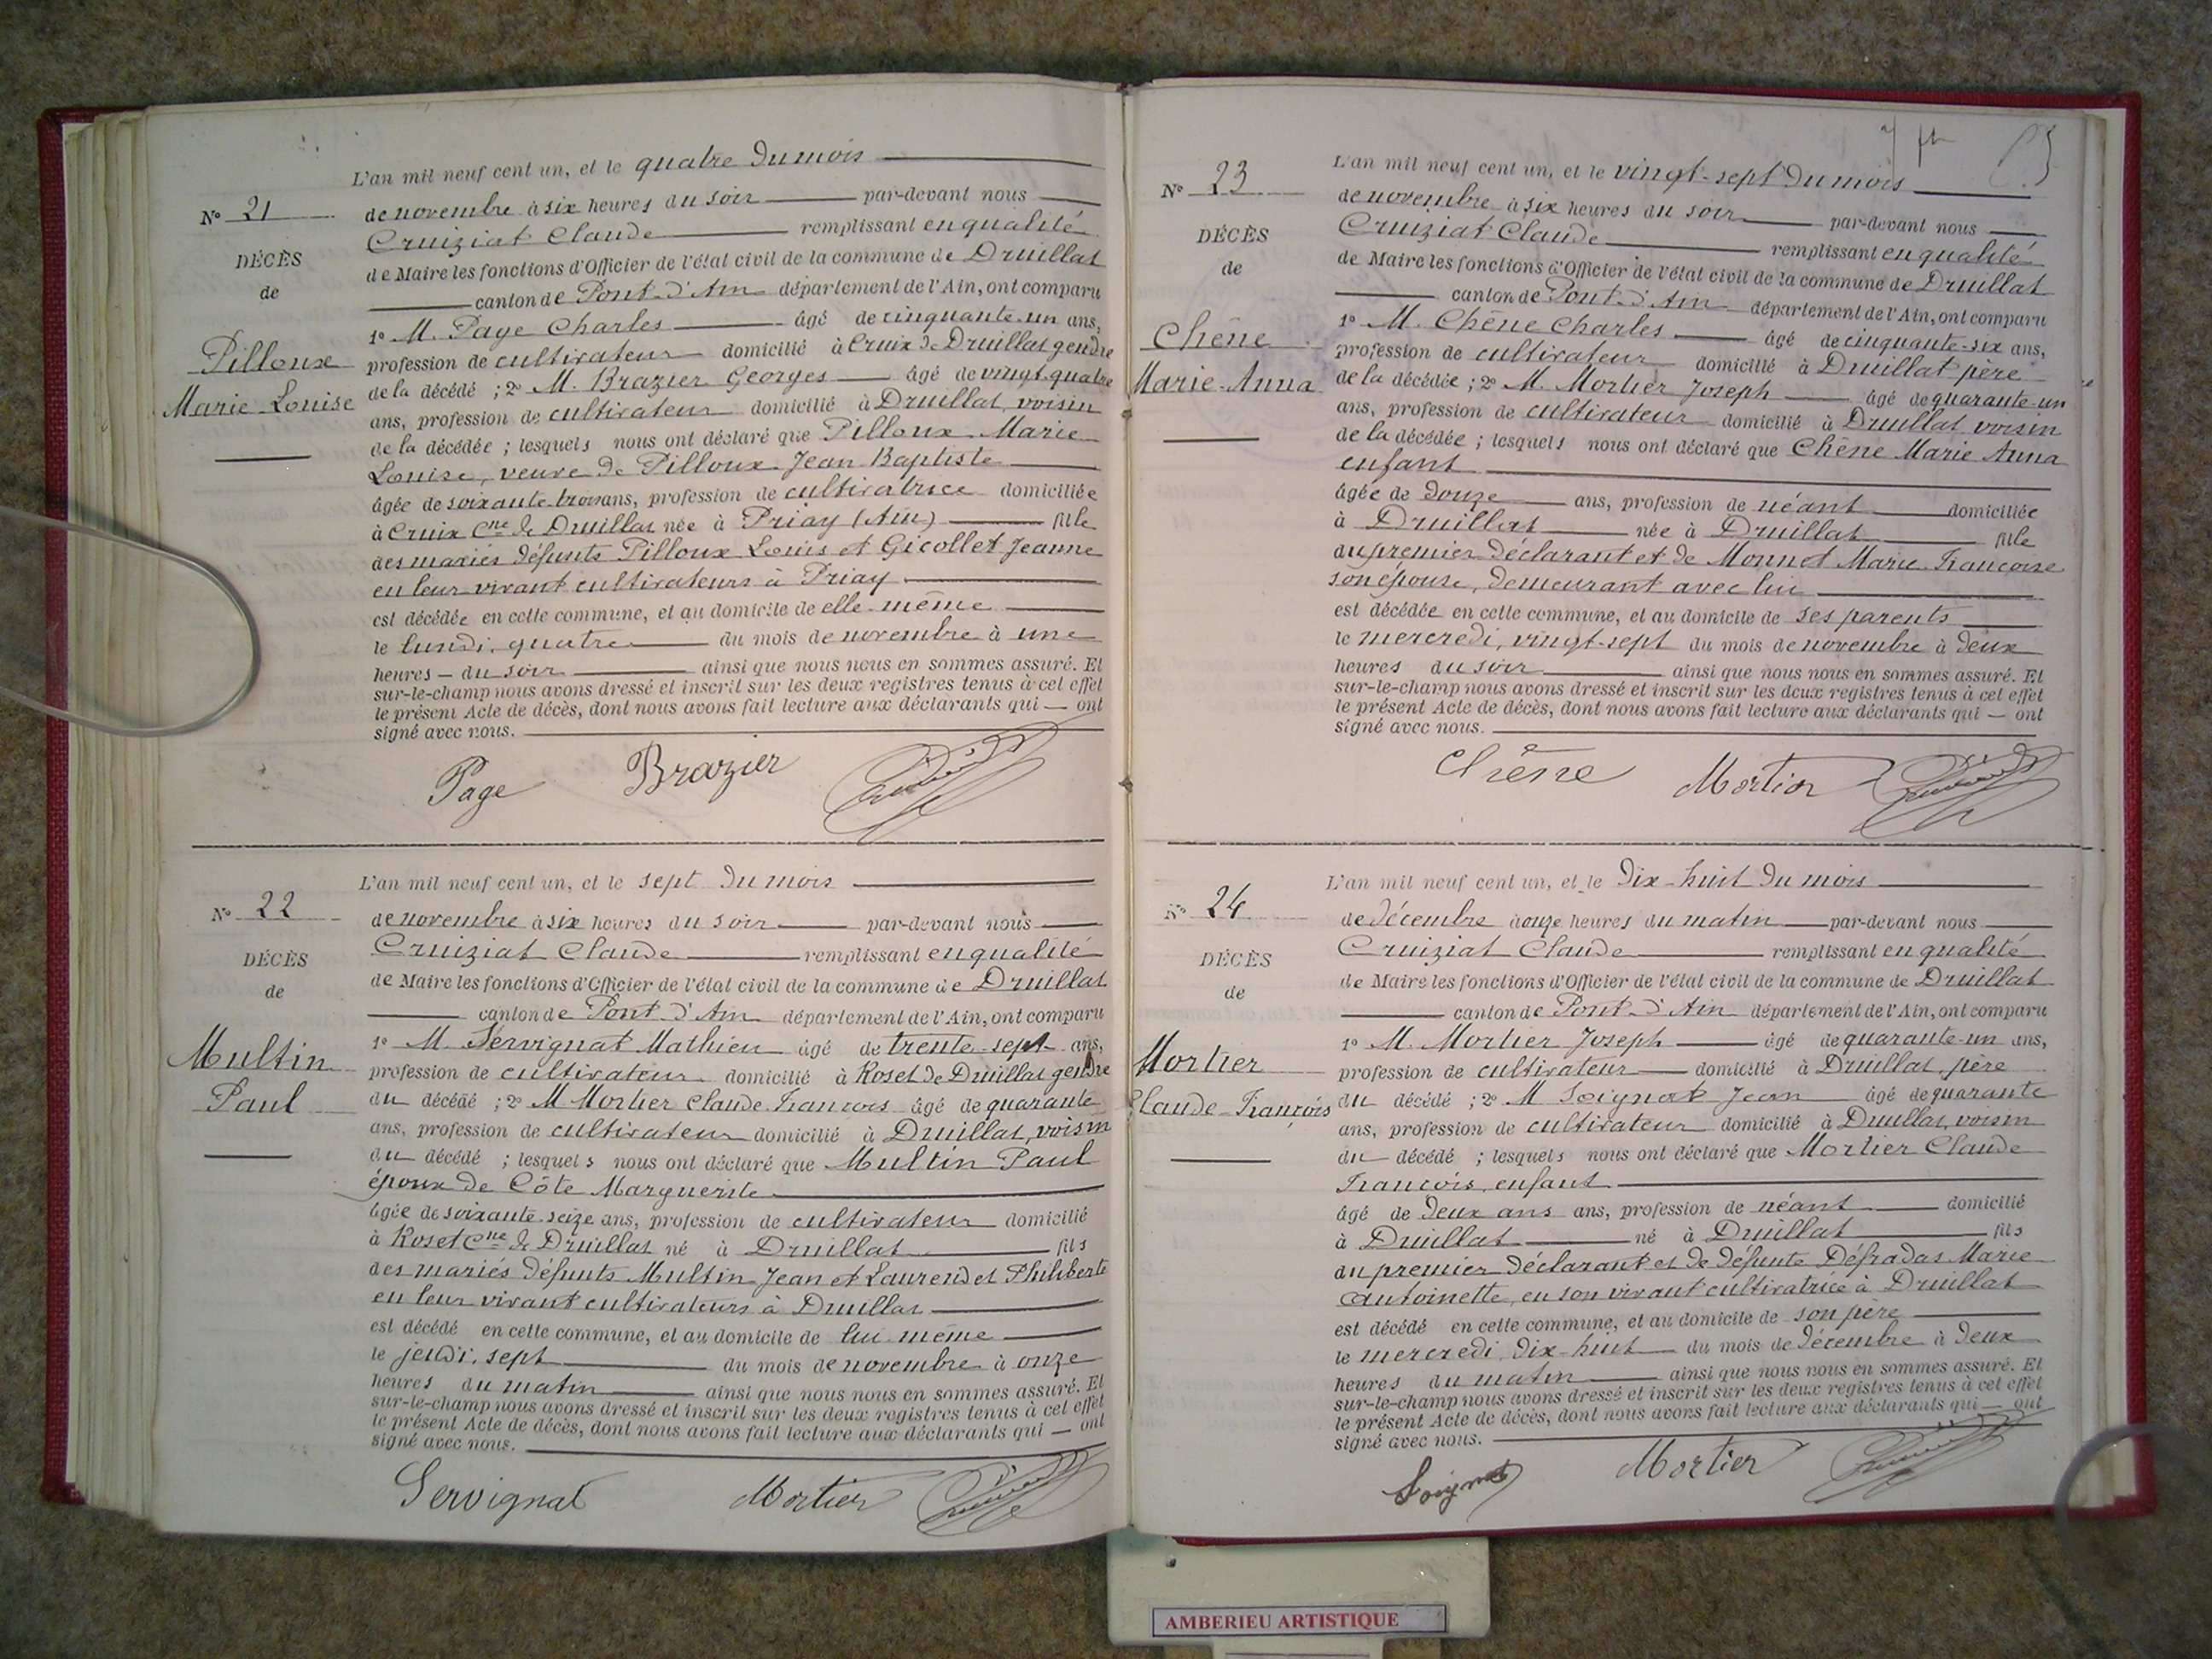 L'an mil neuf cent un, et le quatre du mois
N° 21
de novembre à six heures du soir par-devant nous
Cruiziat Claude remplissant en qualité
DÉCÈS
de Maire les fonctions d'Officier de l'état civil de la commune de Druillat
de
canton de Pont-d'Ain département de l'Ain, ont comparu
1° M. Page Charles âgé de cinquante-un ans,
Pilloux
profession de cultivateur domicilié à Cruix de Druillat gendre
Marie Louise
de la décédé ; 2° M. Brazier Georges âgé de vingt-quatre
ans, profession de cultivateur domicilié à Druillat, voisin
de la décédée ; lesquels nous ont déclaré que Pilloux Marie
Louise, veuve de Pilloux Jean Baptiste
âgée de soixante trois ans, profession de cultivatrice domiciliée
à Cruix Cne de Druillat née à Priay (Ain) fille
des mariés défunts Pilloux Louis et Gicollet Jeanne
en leur vivant cultivateurs à Priay
est décédée en cette commune, et au domicile de elle-même
le lundi, quatre du mois de novembre à une
heures du soir ainsi que nous nous en sommes assuré. Et
sur-le-champ nous avons dressé et inscrit sur les deux registres tenus à cet effet
le présent Acte de décès, dont nous avons fait lecture aux déclarants qui — ont
signé avec nous.
Page Brazier
L'an mil neuf cent un, et le sept du mois
N° 22
de novembre à six heures du soir par-devant nous
Cruiziat Claude remplissant en qualité
DÉCÈS
de Maire les fonctions d'Officier de l'état civil de la commune de Druillat
de
canton de Pont-d'Ain département de l'Ain, ont comparu
1° M. Servignat Mathieu âgé de trente-sept ans,
Multin
profession de cultivateur domicilié à Roset de Druillat gendre
Paul
du décédé ; 2° M Mortier Claude François âgé de quarante
ans, profession de cultivateur domicilié à Druillat, voisin
du décédé ; lesquels nous ont déclaré que Multin Paul
époux de Côte Marguerite
âgée de soixante-seize ans, profession de cultivateur domicilié
à Roset Cne de Druillat né à Druillat fils
des mariés défunts Multin Jean et Laurendet Philiberte
en leur vivant cultivateurs à Druillat
est décédé en cette commune, et au domicile de lui-même
le jeudi, sept du mois de novembre à onze
heures du matin ainsi que nous nous en sommes assuré. Et
sur-le-champ nous avons dressé et inscrit sur les deux registres tenus à cet effet
le présent Acte de décès, dont nous avons fait lecture aux déclarants qui — ont
signé avec nous.
Servignat Mortier
L'an mil neuf cent un, et le vingt-sept du mois
N° 23
de novembre à six heures du soir par-devant nous
Cruiziat Claude remplissant en qualité
DÉCÈS
de Maire les fonctions d'Officier de l'état civil de la commune de Druillat
de
canton de Pont-d'Ain département de l'Ain, ont comparu
1° M. Chêne Charles âgé de cinquante-six ans,
Chêne
profession de cultivateur domicilié à Druillat père
Marie-Anna
de la décédée ; 2° M. Mortier Joseph âgé de quarante-un
ans, profession de cultivateur domicilié à Druillat voisin
de la décédée ; lesquels nous ont déclaré que Chêne Marie Anna
enfant
âgée de douze ans, profession de néant domiciliée
à Druillat née à Druillat fille
du premier déclarant et de Monnet Marie Françoise
son épouse, demeurant avec lui
est décédée en cette commune, et au domicile de ses parents
le mercredi, vingt-sept du mois de novembre à deux
heures du soir ainsi que nous nous en sommes assuré. Et
sur-le-champ nous avons dressé et inscrit sur les deux registres tenus à cet effet
le présent Acte de décès, dont nous avons fait lecture aux déclarants qui — ont
signé avec nous.
Chêne Mortier
L'an mil neuf cent un, et le dix-huit du mois
N° 24
de décembre à onze heures du matin par-devant nous
Cruiziat Claude remplissant en qualité
DÉCÈS
de Maire les fonctions d'Officier de l'état civil de la commune de Druillat
de
canton de Pont-d'Ain département de l'Ain, ont comparu
1° M. Mortier Joseph âgé de quarante-un ans,
Mortier
profession de cultivateur domicilié à Druillat, père
Claude-François
du décédé ; 2° M Soignat Jean âgé de quarante
ans, profession de cultivateur domicilié à Druillat, voisin
du décédé ; lesquels nous ont déclaré que Mortier Claude
François, enfant
âgé de deux ans ans, profession de néant domicilié
à Druillat né à Druillat fils
du premier déclarant et de défunte Défradas Marie
Antoinette, en son vivant cultivatrice à Druillat
est décédé en cette commune, et au domicile de son père
le mercredi dix-huit du mois de décembre à deux
heures du matin ainsi que nous nous en sommes assuré. Et
sur-le-champ nous avons dressé et inscrit sur les deux registres tenus à cet effet
le présent Acte de décès, dont nous avons fait lecture aux déclarants qui — ont
signé avec nous.
Soignat Mortier
AMBERIEU ARTISTIQUE